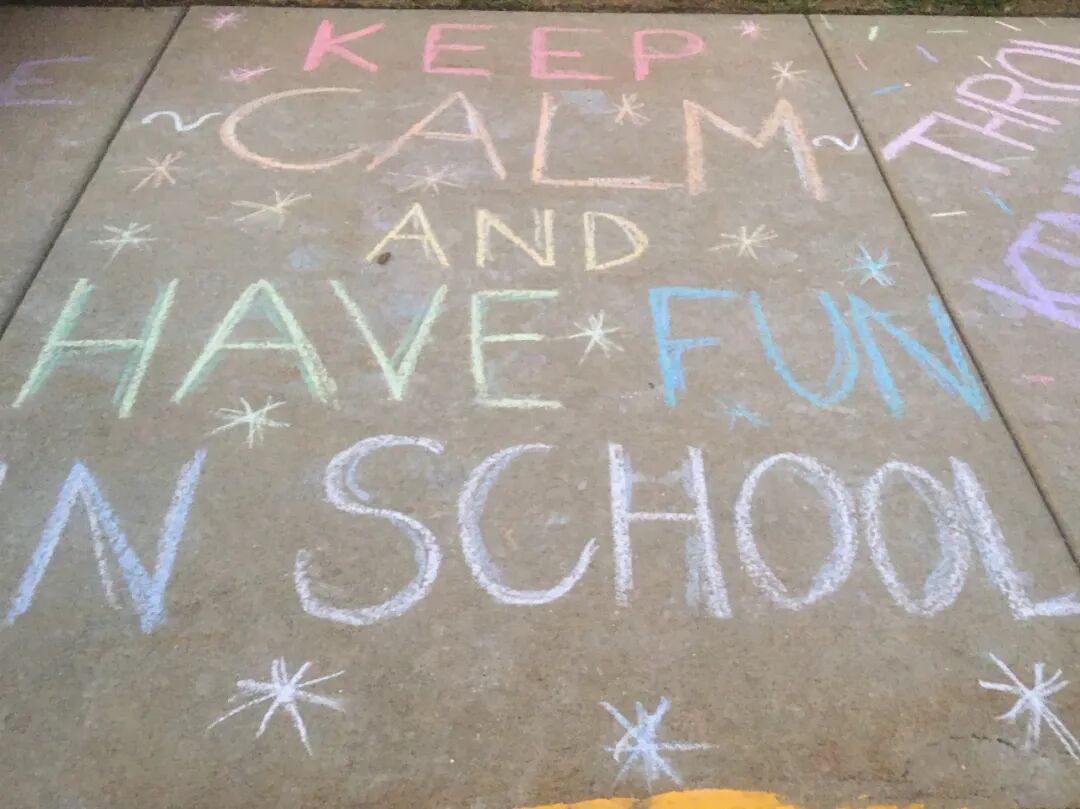 KEEP
CALM
AND
HAVE FUN
IN SCHOOL